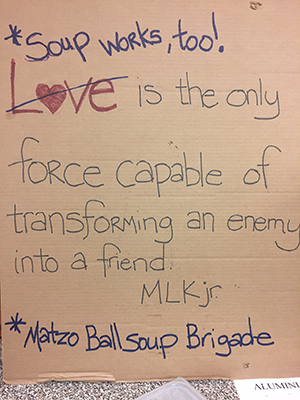 *Soup works, too!
Love is the only
force capable of
transforming an enemy
into a friend.
MLK jr.
*Matzo Ball soup Brigade